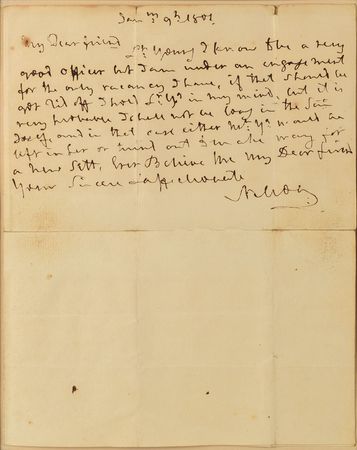 Jan:y 9th 1801.
My Dear friend Lt: Yonny I know to be a very
good officer but I am under an engagement
for the only vacancy I have, if that should be
got rid off I hold Lt: Y's in my mind, but it is
very probable I shall not be long in the San
Josef, and in that case either Mr: Y: would be
left in her or turned out to make way for
a new Sett, Ever Believe me My Dear friend
Your Sincere & affectionate
Nelson